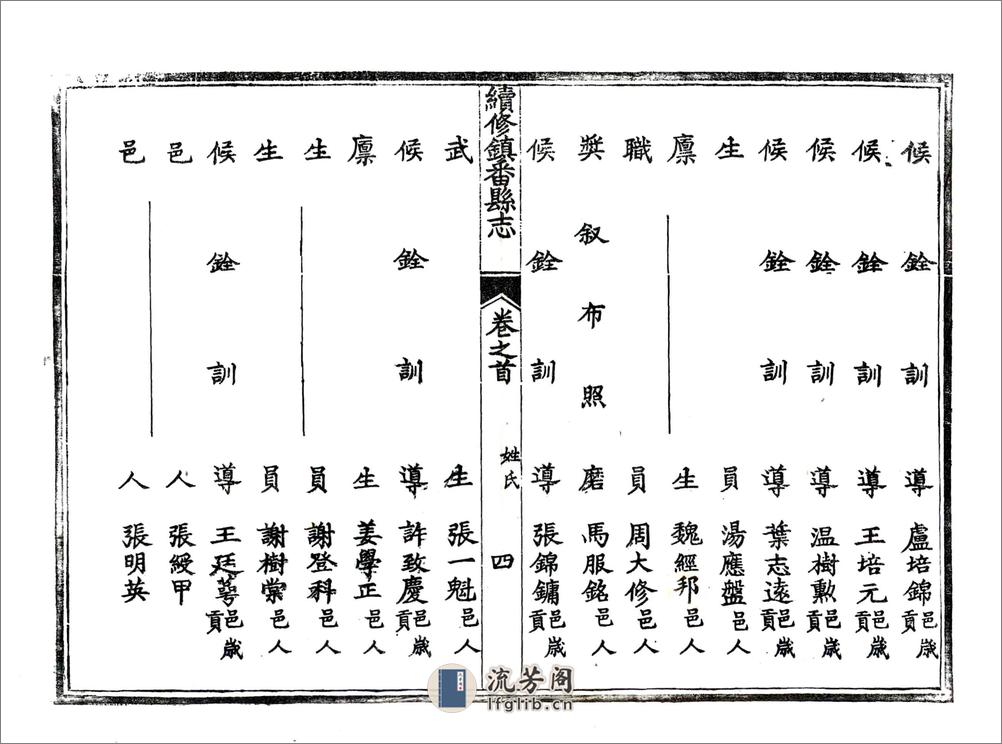 候銓訓導盧培錦邑歲貢
候銓訓導王培元邑歲貢
候銓訓導温樹勲邑歲貢
候銓訓導葉志遠邑歲貢
生員湯應盤邑人
廪生魏經邦邑人
職員周大修邑人
奬叙布照磨馬服銘邑人
候銓訓導張錦鏞邑歲貢
續修鎮番縣志
卷之首
姓氏
四
武生張一魁邑人
候銓訓導許致慶邑歲貢
廪生姜學正邑人
生員謝登科邑人
生員謝樹棠邑人
候銓訓導王廷萼邑歲貢
邑人張綬甲
邑人張明英
流芳阁
lfglib.cn